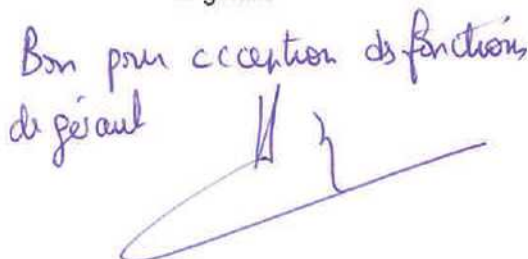 Bon pour acception des fonctions
de gérant